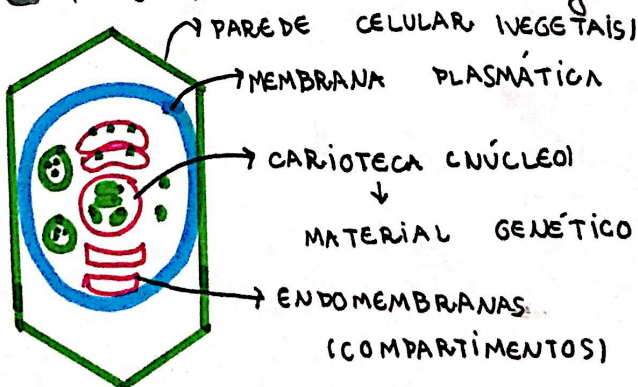 PAREDE CELULAR (VEGETAIS)
MEMBRANA PLASMÁTICA
CARIOTECA (NÚCLEO)
MATERIAL GENÉTICO
ENDOMEMBRANAS
(COMPARTIMENTOS)